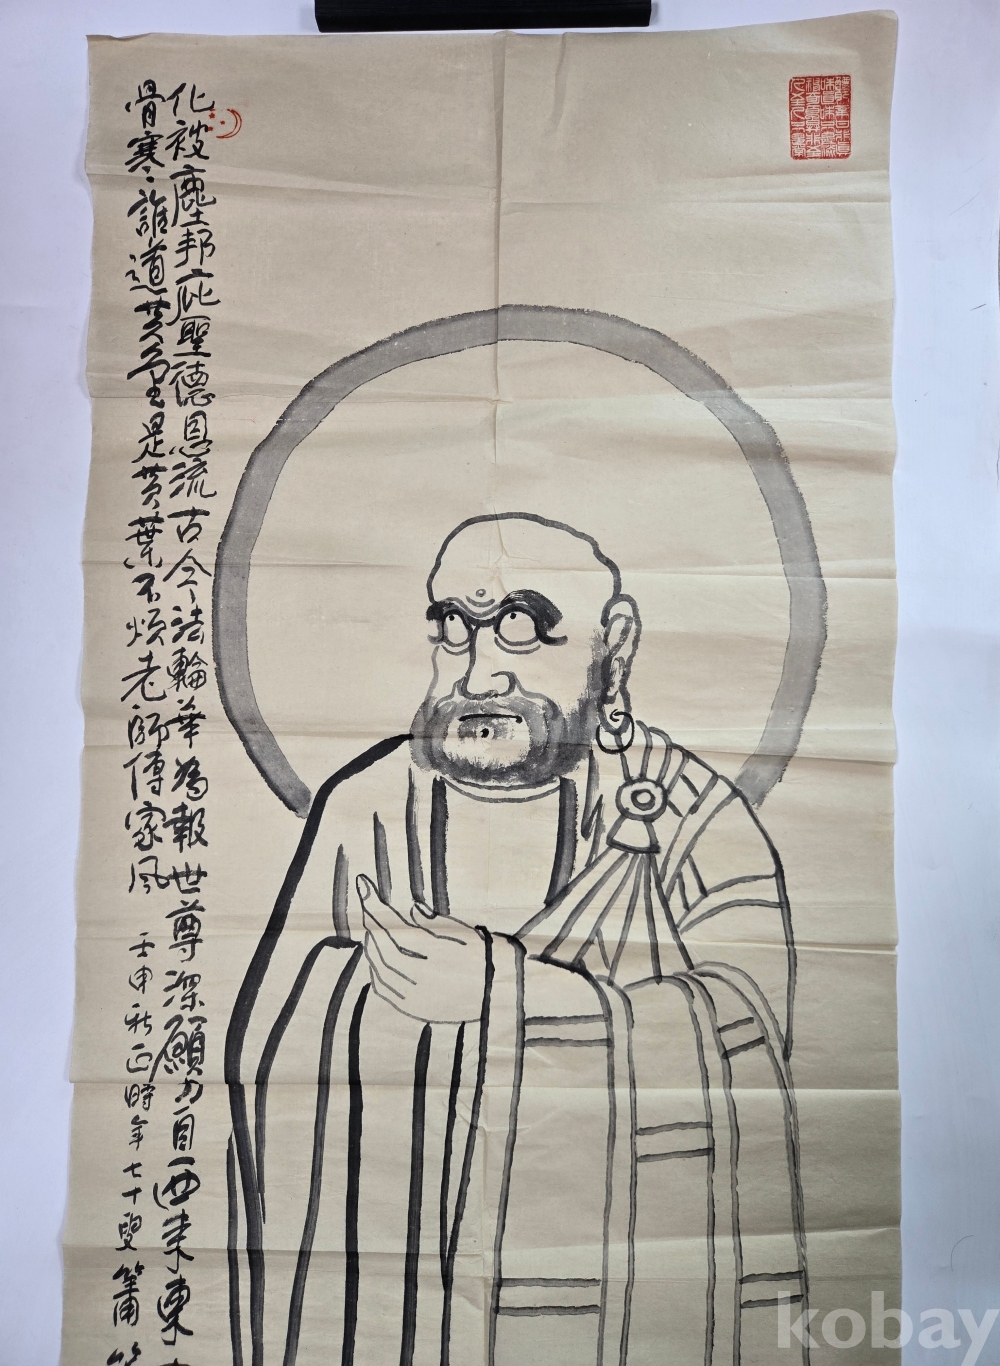 化被塵邦庇聖德恩流古今法輪華為報世尊深願力自西來東
骨寒誰道黃金是黃葉不煩老師傳家風
壬申秋正時年七十叟箫
kobay